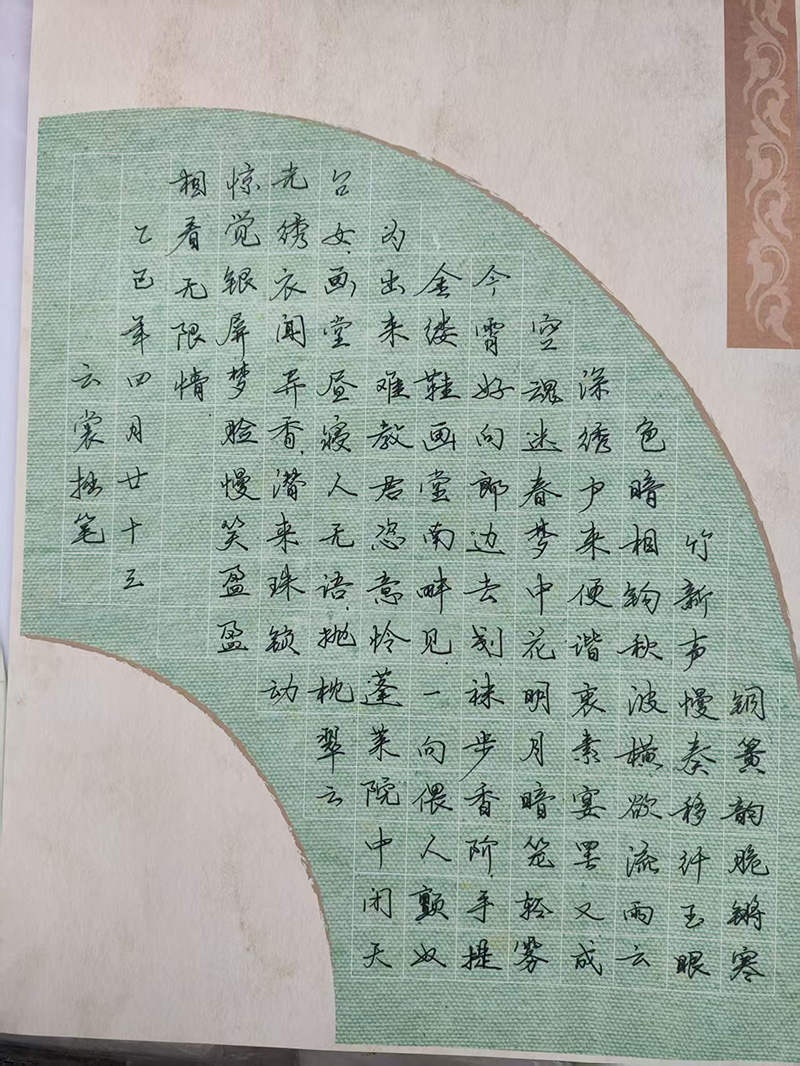 铜簧韵脆锵寒
竹新声慢奏移纤玉眼
色暗相钩秋波横欲流雨云
深绣户来便谐衷素宴罢又成
空魂迷春梦中花明月暗笼轻雾
今霄好向郎边去划袜步香阶手提
金缕鞋画堂南畔见一向偎人颤奴
为出来难教君恣意怜蓬莱院中闭天
台女画堂昼寝人无语抛枕翠云
光绣衣闻异香潜来珠锁动
惊觉银屏梦脸慢笑盈盈
相看无限情
乙巳年四月廿十三
云裳拙笔